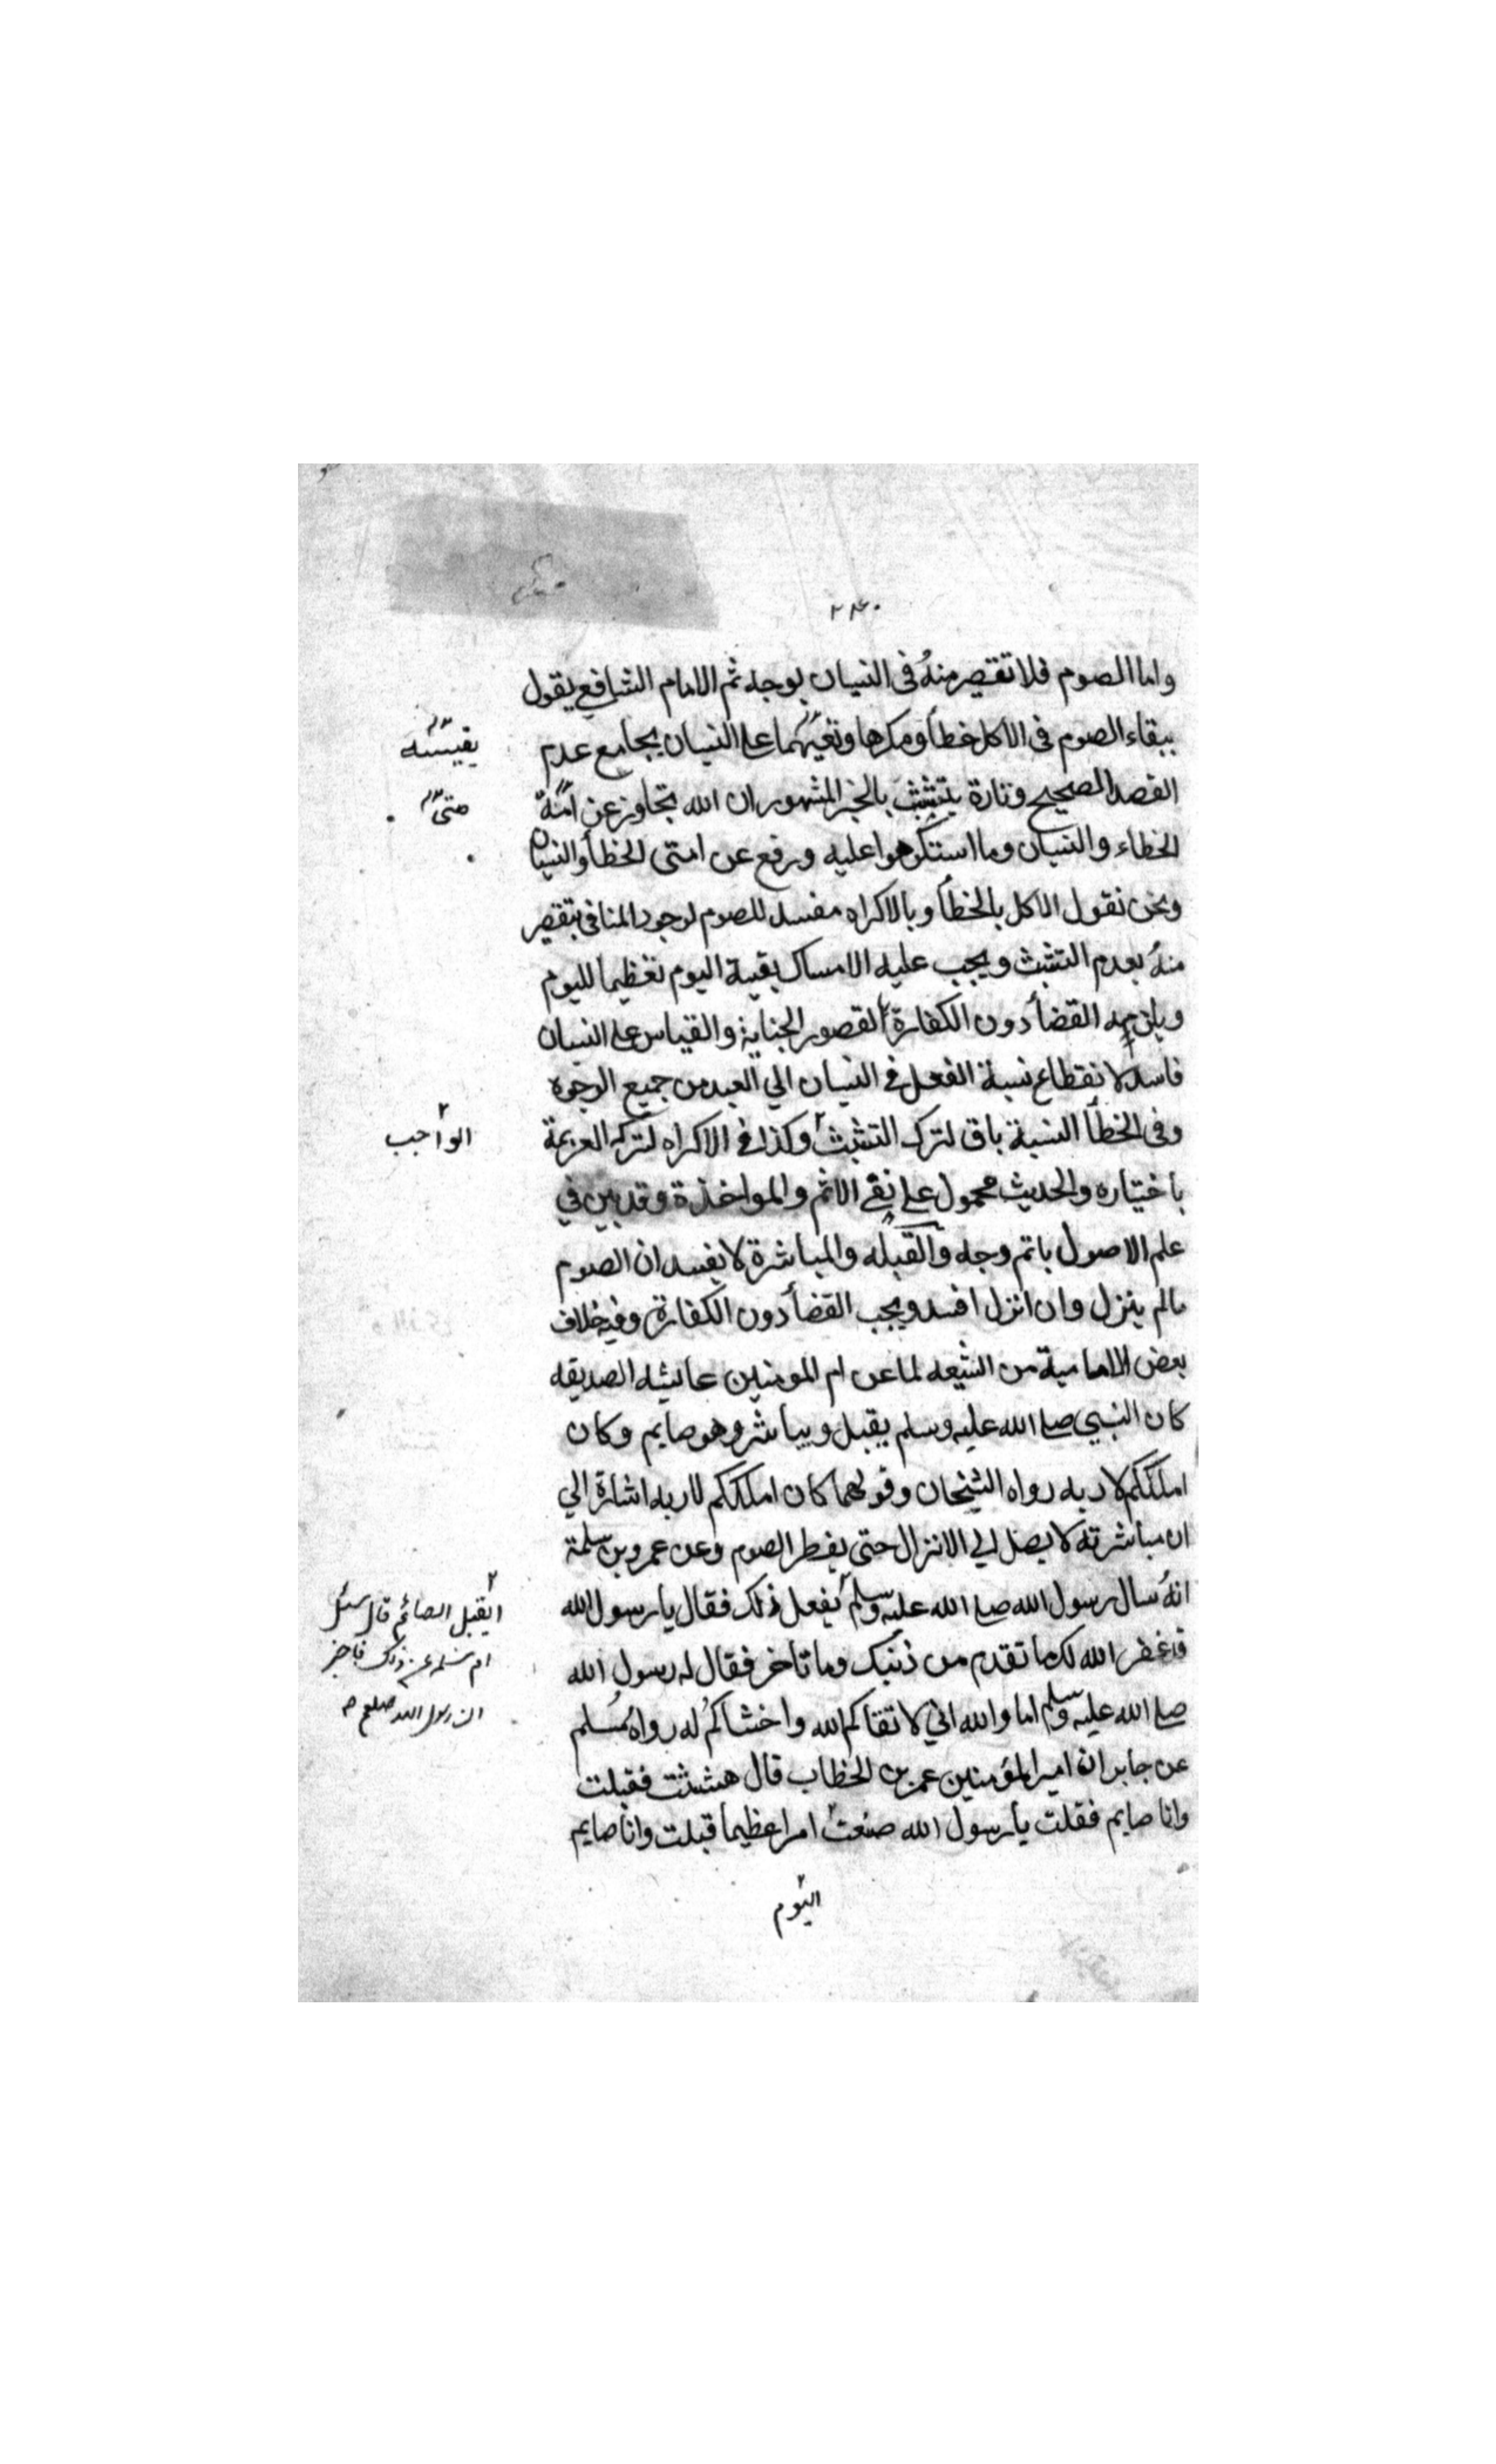 ٢٤٠
واما الصوم فلا تقصير منهُ فى النسيان بوجه ثم الامام الشافعي يقول
ببقاء الصوم فى الاكل خطأ ومكرها على النسيان بجامع عدم
يقيسه
القصد الصحيح وتارة يتشبث بالخبر المشهور ان الله تجاوز عن امته
متى
الخطاء والنسيان وما استكرهوا عليه ورفع عن امتى الخطأ والنسيان
ونحن نقول الاكل بالخطأ وبالاكراه مفسد للصوم لوجود المنافى بتقصير
منهُ بعدم التثبث ويجب عليه الامساك بقية اليوم تعظيما لليوم
ويلزمه القضأ دون الكفارة لقصور الجناية والقياس على النسيان
فاسد لانقطاع نسبة الفعل فى النسيان الي العبد من جميع الوجوه
وفى الخطأ النسبة باق لترك التثبث وكذا فى الاكراه لتركه العزيمة
الواجب
باختياره والحديث محمول على نفى الاثم والمواخذة وقد بين في
علم الاصول باتم وجه والقبله والمباشرة لا يفسدان الصوم
مالم ينزل وان انزل افسد ويجب القضأ دون الكفارة وفيه خلاف
بعض الامامية من الشيعه لما عن ام المومنين عائشه الصديقه
كان النبي صلى الله عليه وسلم يقبل ويباشر وهو صايم وكان
املككم لاربه رواه الشيخان وقولهما كان املككم لاربه اشارة الي
ان مباشرته لا يصل الى الانزال حتى يفطر الصوم وعن عمرو بن سلمة
انهُ سال رسول الله صلى الله عليه وسلم يفعل ذلك فقال يا رسول الله
ايقبل الصائم قال سئل
ام سلمه عن ذلك فاخبر
ان رسول الله صلعم
قد غفر الله لك ما تقدم من ذنبك وما تاخر فقال له رسول الله
صلى الله عليه وسلم اما والله اني لاتقاكم لله واخشاكم له رواه مُسلم
عن جابر ان امير المؤمنين عمر بن الخطاب قال هششت فقبلت
وانا صايم فقلت يا رسول الله صنعت امرا عظيما قبلت وانا صايم
اليوم